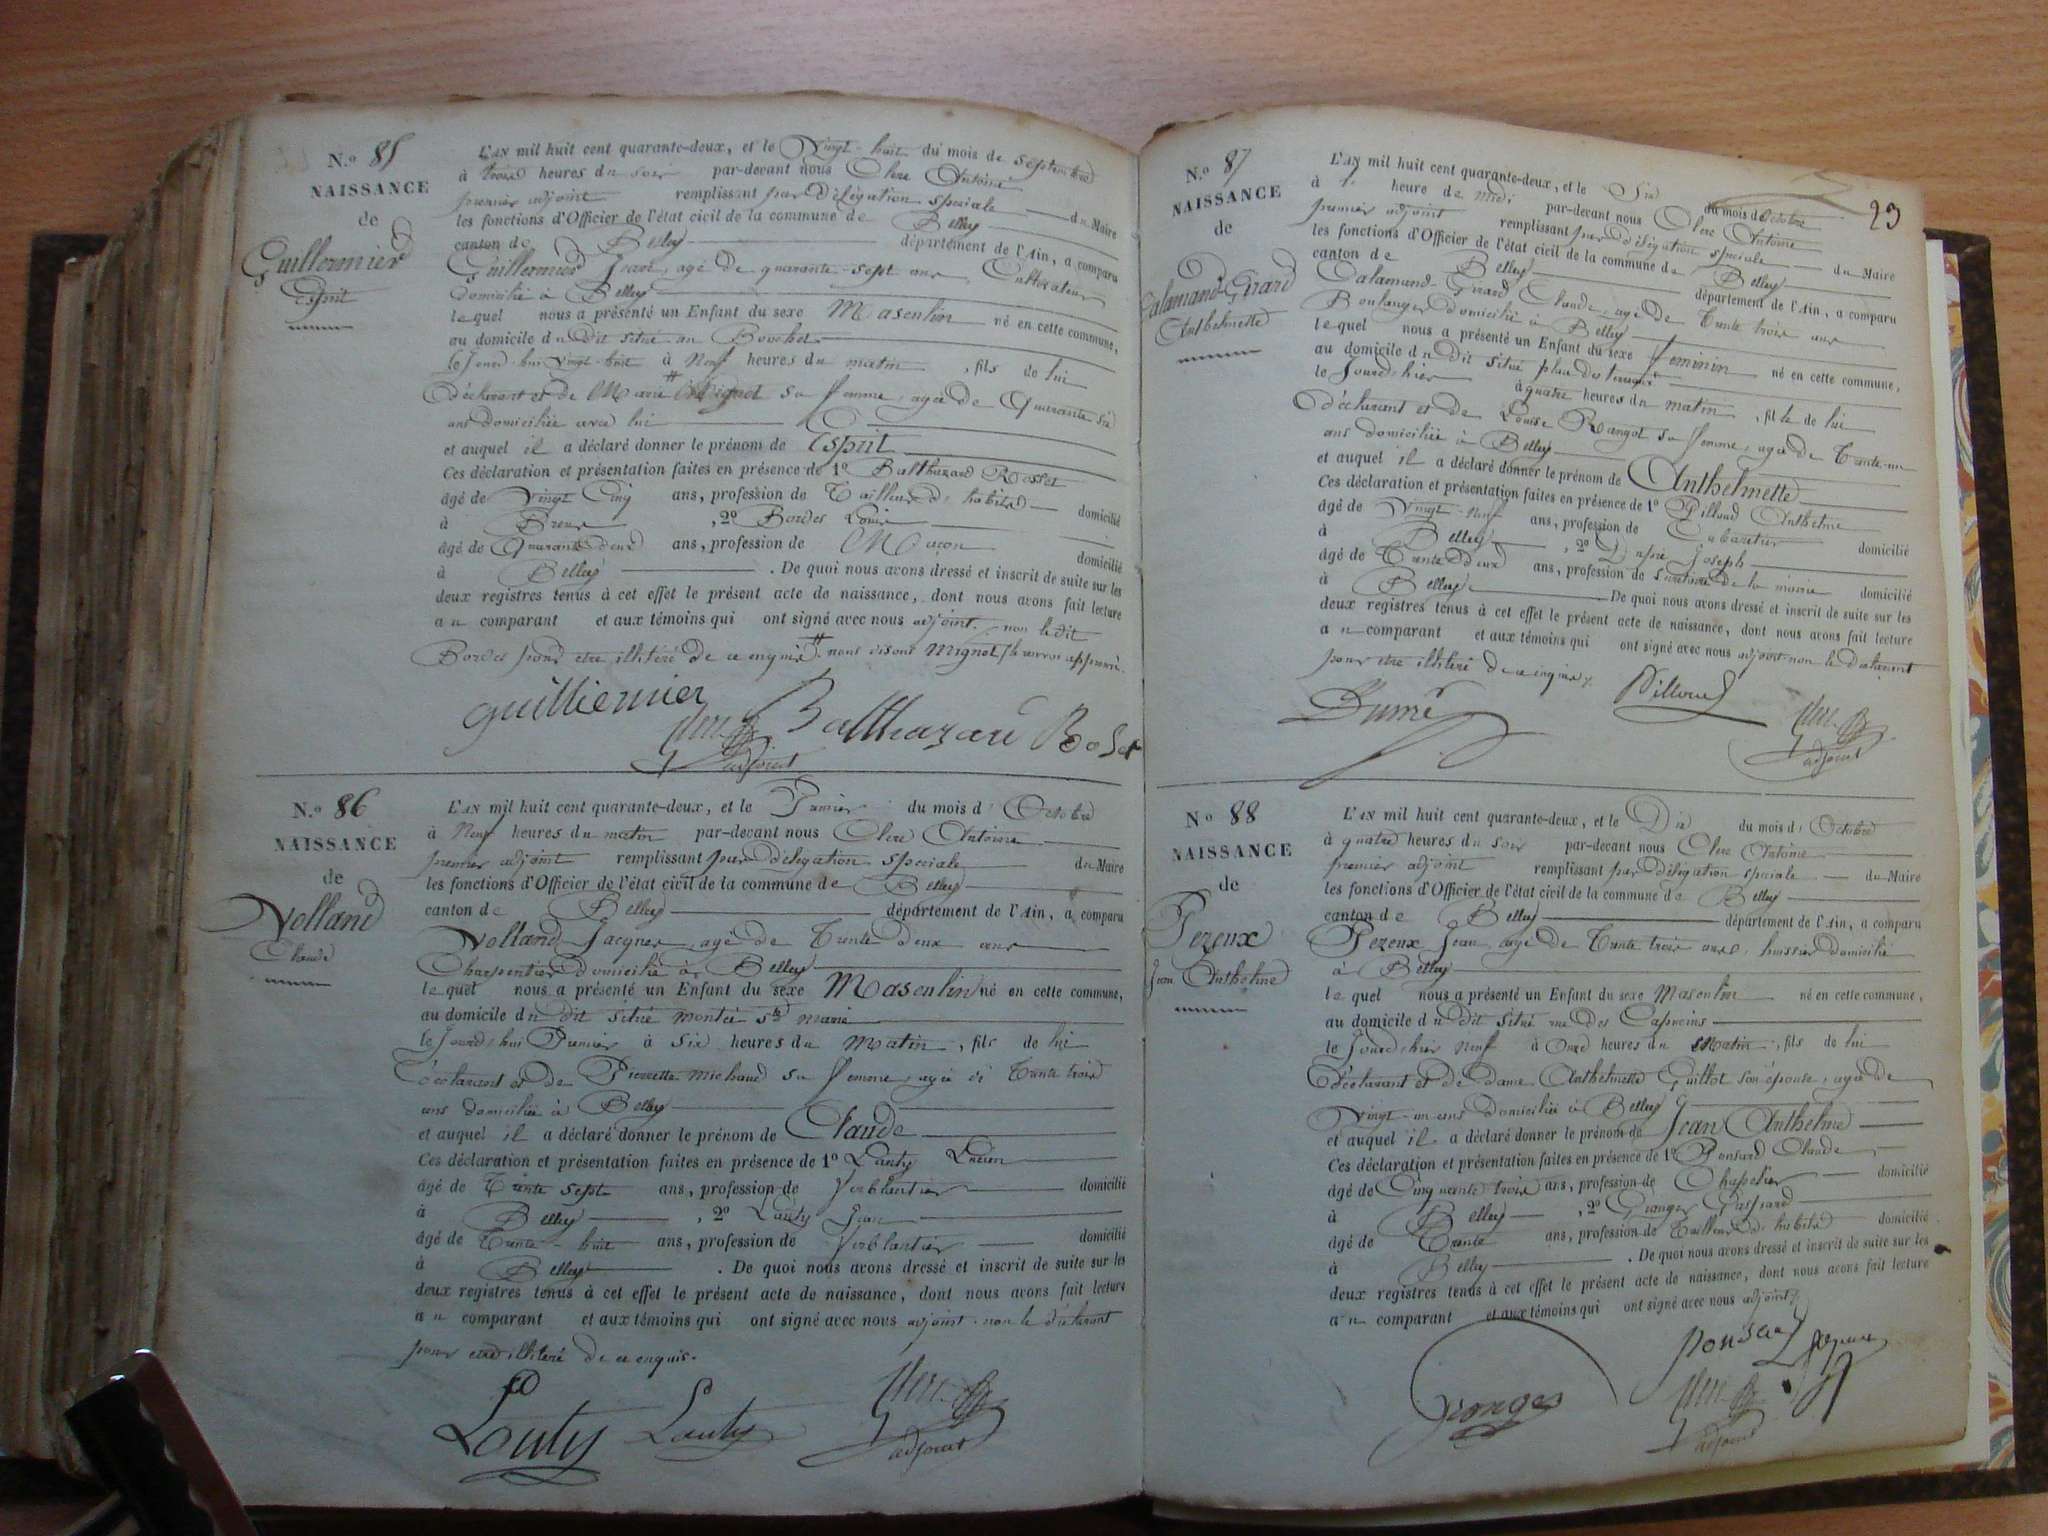 N.o 85
NAISSANCE
de
Guillermier
Esprit
L'AN mil huit cent quarante-deux, et le Vingt-huit du mois de Septembre
à trois heures du soir par-devant nous Clerc Antoine
premier adjoint remplissant par délégation spéciale du Maire
les fonctions d'Officier de l'état civil de la commune de Belley
canton de Belley département de l'Ain, a comparu
Guillermier Jean, agé de quarante-sept ans Cultivateur
domicilié à Belley
lequel nous a présenté un Enfant du sexe Masculin né en cette commune,
au domicile du dit situé au Bouchet
le Jourd'hui vingt-huit à Neuf heures du matin, fils de lui
déclarant et de Marie Mignot sa femme, agée de Quarante six
ans domiciliée avec lui
et auquel il a déclaré donner le prénom de Esprit
Ces déclaration et présentation faites en présence de 1º Balthazard Rosset
âgé de Vingt Cinq ans, profession de Tailleur d'habits domicilié
à , 2º Bordes Louis
âgé de Quarante deux ans, profession de Maçon domicilié
à Belley . De quoi nous avons dressé et inscrit de suite sur les
deux registres tenus à cet effet le présent acte de naissance, dont nous avons fait lecture
au comparant et aux témoins qui ont signé avec nous adjoint, non le dit
Bordes pour être illitéré de ce enquis. nous disons Mignot, le renvoi approuvé.
guilliermier Balthazard Roset
Clerc
adjoint
N.o 86
NAISSANCE
de
Volland
Claude
L'AN mil huit cent quarante-deux, et le Premier du mois d'Octobre
à Neuf heures du matin par-devant nous Clerc Antoine
premier adjoint remplissant par délégation spéciale du Maire
les fonctions d'Officier de l'état civil de la commune de Belley
canton de Belley département de l'Ain, a comparu
Volland Jacques, agé de Trente deux ans
Charpentier domicilié à Belley
lequel nous a présenté un Enfant du sexe Masculin né en cette commune,
au domicile du dit situé montée Ste marie
le Jourd'hui Premier à Six heures du Matin, fils de lui
déclarant et de Pierrette Michaud sa femme, agée de Trente trois
ans domiciliée à Belley
et auquel il a déclaré donner le prénom de Claude
Ces déclaration et présentation faites en présence de 1º Lauty Lucien
âgé de Trente sept ans, profession de ferblantier domicilié
à Belley , 2º Lauty Jean
âgé de Trente-huit ans, profession de ferblantier domicilié
à Belley . De quoi nous avons dressé et inscrit de suite sur les
deux registres tenus à cet effet le présent acte de naissance, dont nous avons fait lecture
au comparant et aux témoins qui ont signé avec nous adjoint. non le déclarant
pour être illitéré de ce enquis.
Lauty Lauty Clerc
adjoint
23
N.o 87
NAISSANCE
de
Calamand-Girard
Anthelmette
L'AN mil huit cent quarante-deux, et le Six du mois d'Octobre
à 1 heure de midi par-devant nous Clerc Antoine
premier adjoint remplissant par délégation spéciale du Maire
les fonctions d'Officier de l'état civil de la commune de Belley
canton de Belley département de l'Ain, a comparu
Calamand-Girard Claude, agé de Trente trois ans
Boulanger domicilié à Belley
lequel nous a présenté un Enfant du sexe feminin né en cette commune,
au domicile du dit situé place des
le Jourd'hier à quatre heures du matin, fille de lui
déclarant et de Louise Rangot sa femme, agée de Trente-un
ans domiciliée à Belley
et auquel il a déclaré donner le prénom de Anthelmette
Ces déclaration et présentation faites en présence de 1º Pilloud Anthelme
âgé de Vingt-Neuf ans, profession de Cabaretier domicilié
à Belley , 2º Joseph
âgé de Trente Deux ans, profession de Secrétaire de la mairie domicilié
à Belley De quoi nous avons dressé et inscrit de suite sur les
deux registres tenus à cet effet le présent acte de naissance, dont nous avons fait lecture
au comparant et aux témoins qui ont signé avec nous adjoint non le déclarant
pour être illitéré de ce enquis.
Pilloud Clerc
adjoint
N.o 88
NAISSANCE
de
Pezeux
Jean Anthelme
L'AN mil huit cent quarante-deux, et le Dix du mois d'Octobre
à quatre heures du soir par-devant nous Clerc Antoine
premier adjoint remplissant par délégation spéciale du Maire
les fonctions d'Officier de l'état civil de la commune de Belley
canton de Belley département de l'Ain, a comparu
Pezeux Jean, agé de Trente trois ans, huissier domicilié
à Belley
lequel nous a présenté un Enfant du sexe Masculin né en cette commune,
au domicile du dit situé rue des Capucins
le Jourd'hier neuf à Onze heures du Matin, fils de lui
déclarant et de dame Anthelmette Guillot son épouse, agée de
Vingt-un ans domiciliée à Belley
et auquel il a déclaré donner le prénom de Jean Anthelme
Ces déclaration et présentation faites en présence de 1º Ponsard Claude
âgé de Cinquante trois ans, profession de Chapelier domicilié
à Belley , 2º Granger Gaspard
âgé de Trente ans, profession de Tailleur d'habits domicilié
à Belley . De quoi nous avons dressé et inscrit de suite sur les
deux registres tenus à cet effet le présent acte de naissance, dont nous avons fait lecture
au comparant et aux témoins qui ont signé avec nous adjoint
Ponsard Pezeux
Granger Clerc
adjoint